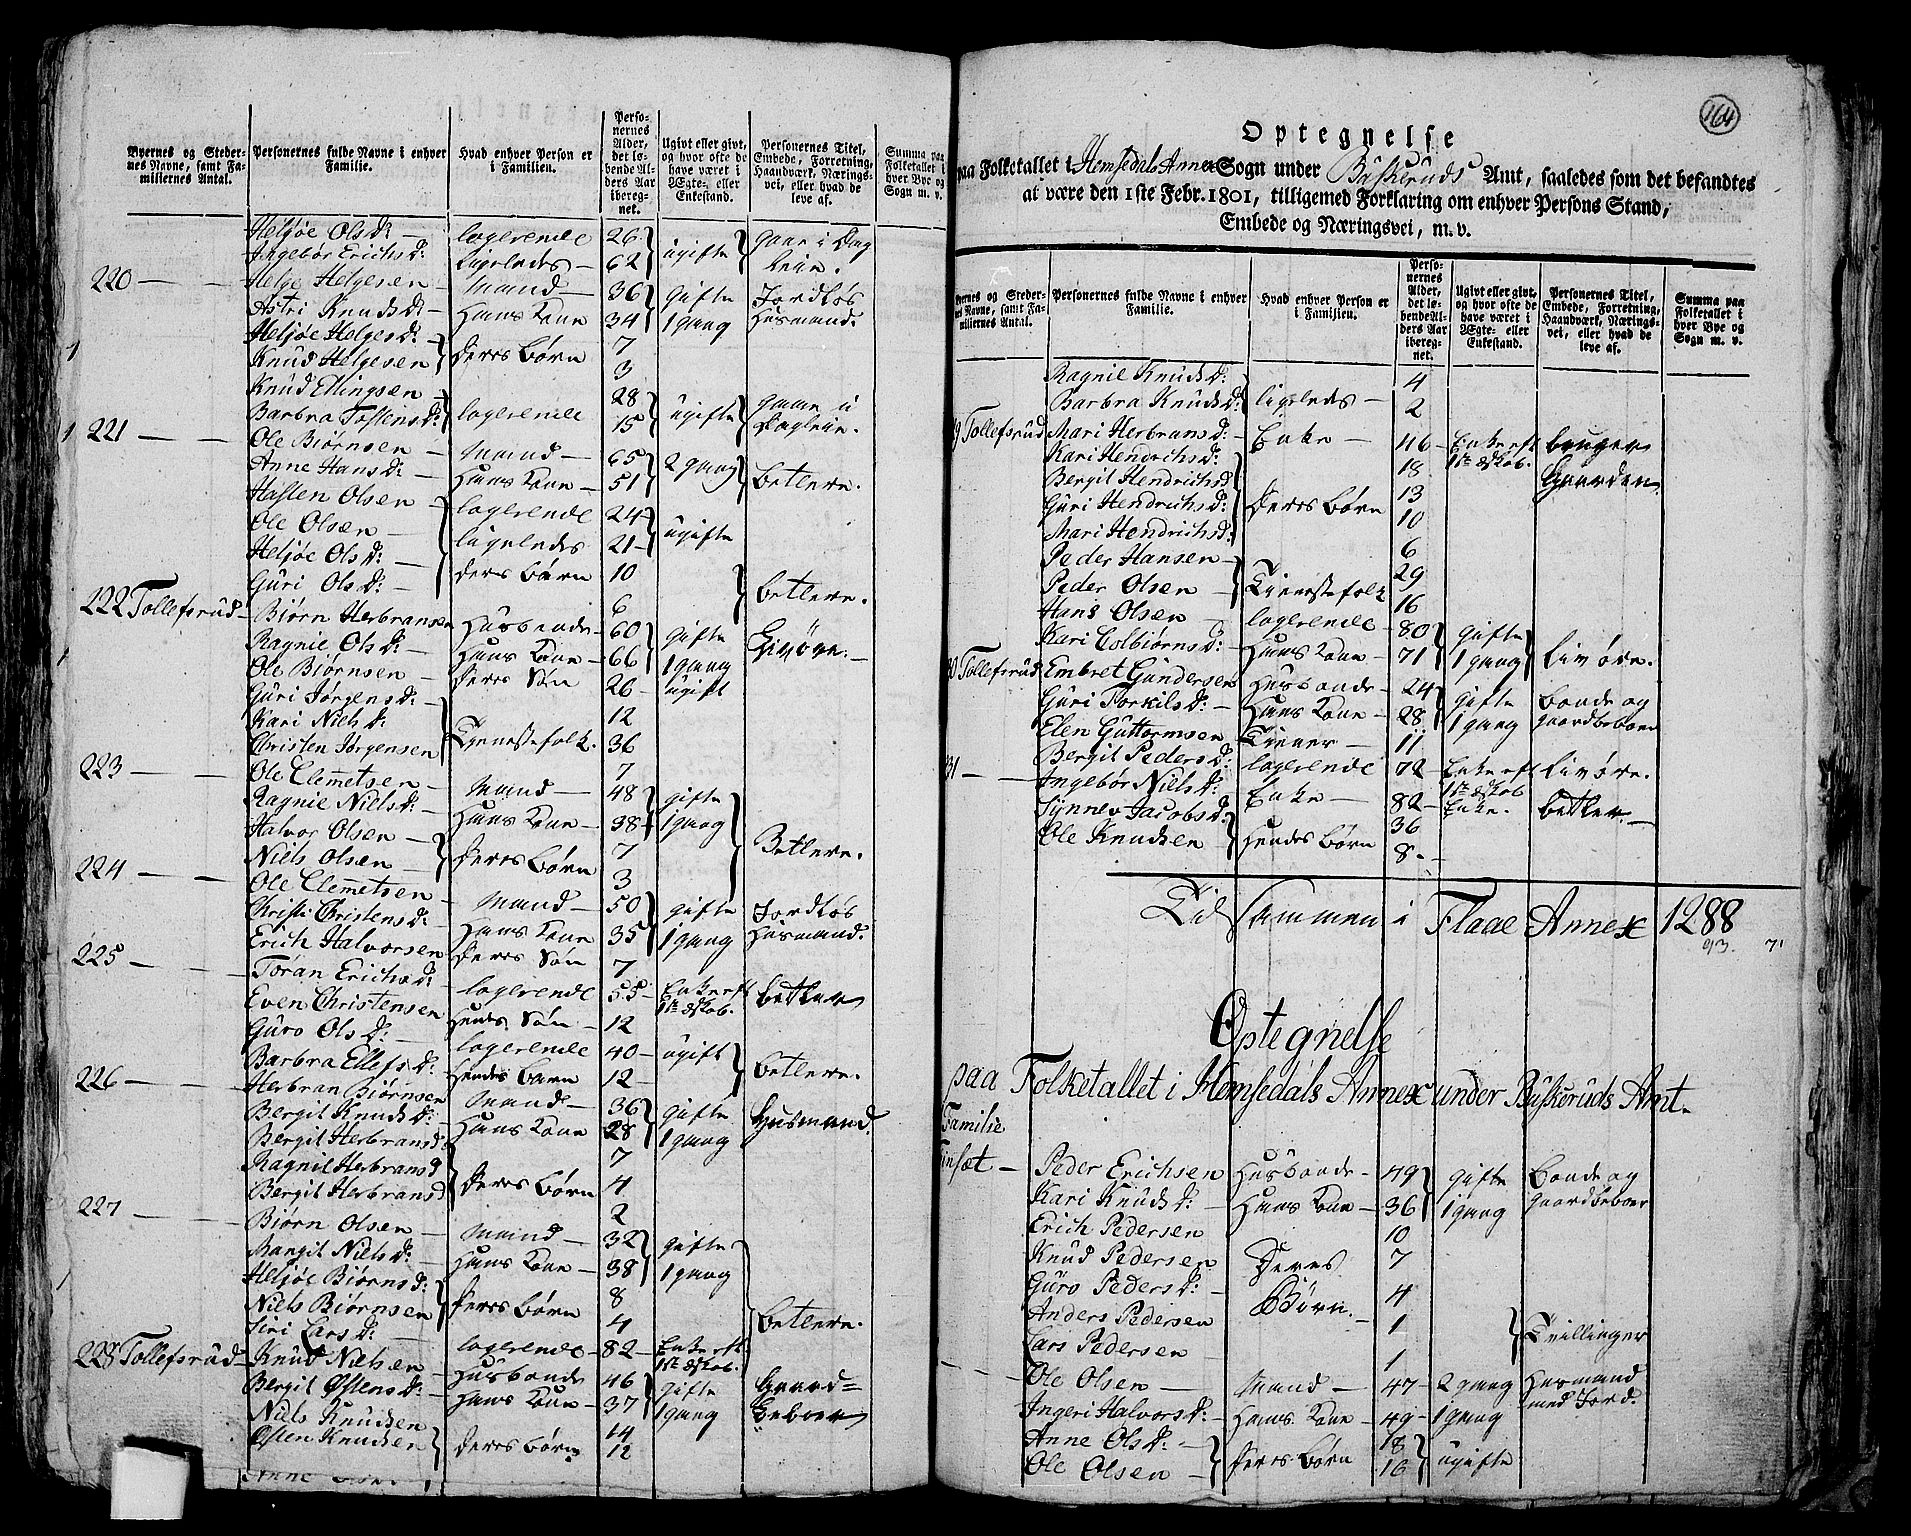 Byernes og Stedernes Navne, samt Familiernes Antal.
Personernes fulde Navne i enhver Familie.
Hvad enhver Person er i Familien.
Personernes Alder, det løbende Alders Aar iberegnet.
Ugivt eller givt, og hvor ofte de have været i Ægte- eller Enkestand.
Personernes Titel, Embede, Forretning, Haandværk, Næringsvei, eller hvad de leve af.
Summa paa Folketallet i hver Bye og Sogn m. v.
Heljøe Olsd: — logerende 26 ugifte
Ingebor Erichsd: ligeledes — 62
220 — — Helge Helgesen — Mand — 36 gifte Jordløs
Astri Knudsd: — Hans Kone 34 1 gang Husmand.
Heljøe Helgesd: — deres Børn 7
Knud Helgesen 3
Knud Ellingsen — logerende 28 ugifte gaae i
Barbra Tostensd: 15 Dagleie.
221 — — Ole Biørnsen — Mand — 65 2 gang betlere.
Anne Hansd: — Hans Kone — 51
Hasten Olsen — logerende 24 ugifte
Ole Olsen — ligeledes 21
Heljøe Olsd: — deres børn 10 betlere.
Guri Olsd: — 6
222 Tollefsrud — Biørn Herbransen Husbonde — 60 gifte
Ragnil Olsd: — Hans Kone — 66 1 gang
Ole Biørnsen — deres Søn 26 — ugift
Guri Jørgensd: — Tienestefolk. 12
Kari Nielsd: 36
Christen Jørgensen 7
223 — — Ole Clemetsen — Mand — 48 gifte Betlere.
Ragnie Nielsd: — Hans Kone — 38 1 gang
Halvor Olsen — deres Børn 7
Niels Olsen 3
224 — — Ole Clemetsen — Mand — 50 gifte Jordløs
Christi Christensd: Hans Kone 35 1 gang Husmand.
Erich Halvorsen deres Søn 7
225 — — Toran Erichsd: logerende 55 — Enke eft 1ste Ægtskab. betler
Even Christensen hendes Søn — 12
Guro Olsd: — logerende 40 — ugift betlere.
Barbra Ellefsd: hendes barn 12 —
226 — — Herbran Biørnsen Mand — 36 gifte Husmand.
Bergit Knudsd: Hans Kone 28 1 gang
Bergit Herbransd 7
Ragnil Herbransd deres Børn 4
Bergit Herbransd 2
227 — — Biørn Olsen — Mand — 32 gifte betlere.
Margit Nielsd: — Hans Kone — 38 1 gang
Heljøe Biørnsd: deres børn 8
Niels Biørnsen 4
Siri Larsd: — logerende — 82 — Enke eft 1ste Ægtskab.
228 Tollefsrud — Knud Nielsen Husbonde 46 gifte Gaard=
Bergit Østensd: Hans Kone — 37 1 gang beboer
Niels Knudsen deres børn 14
Østen Knudsen 12
164
Optegnelse
paa Folketallet i Hemsedals Annex Sogn under Buskeruds Amt, saaledes som det befandtes
at være den 1ste Febr. 1801, tilligemed Forklaring om enhver Persons Stand,
Embede og Næringsvei, m. v.
Byernes og Stedernes Navne, samt Familiernes Antal.
Personernes fulde Navne i enhver Familie.
Hvad enhver Person er i Familien.
Personernes Alder, det løbende Alders Aar iberegnet.
Ugivt eller givt, og hvor ofte de have været i Ægte- eller Enkestand.
Personernes Titel, Embede, Forretning, Haandværk, Næringsvei, eller hvad de leve af.
Summa paa Folketallet i hver Bye og Sogn m. v.
Ragnie Knudsd: ligeleds — 4
Barbra Knudsd: 2
9 Tollefsrud Mari Herbransd: — Enke — 46 — Enke eft 1ste Ægtskab. bruger
Kari Hendrichsd: 18 Gaarden.
Bergit Hendrichsd deres Børn 13
Guri Hendrichsd: 10
Mari Hendrichsd: 6
Peder Hansen — Tienestefolk 29
Peder Olsen — 16
Hans Olsen — logerende — 80 gifte livøre.
Kari Colbiørnsd: Hans Kone — 71 1 gang
30 Tollefsrud Embret Gundersen Husbonde — 24 gifte bonde og
Guri Torkilsd: — Hans Kone — 28 1 gang gaardbeboer
Elen Guttormsen Tiener — 11
Bergit Pedersd: logerende 72 — Enke eft 1ste Ægtskab livøre.
31 — — Ingebør Nielsd: Enke — 82 — Enke. betler. —
Synnev Jacobsd: Hendes børn 36
Ole Knudsen 8. —
Tilsammen i Flaae Annex 1288
93. 71
Optegnelse
paa Folketallet i Hemsedals Annex under Buskeruds Amt.
Familie
Peder Erichsen Husbonde — 49 gifte Bonde og
Kari Knudsd: — Hans Kone — 36 1 gang gaardbeboer
Erich Pedersen 10
Knud Pedersen Deres 7
Guro Pedersd: — Børn. 4
Anders Pedersen 1 Tvillinger
Lars Pedersen — 1
— Ole Olsen — Mand — 47 — 2 gang Husmand
Ingeri Halvorsd: — Hans Kone — 49 — 1 gang med Jord.
Anne Olsd: — deres børn 18 ugifte
Ole Olsen — 16